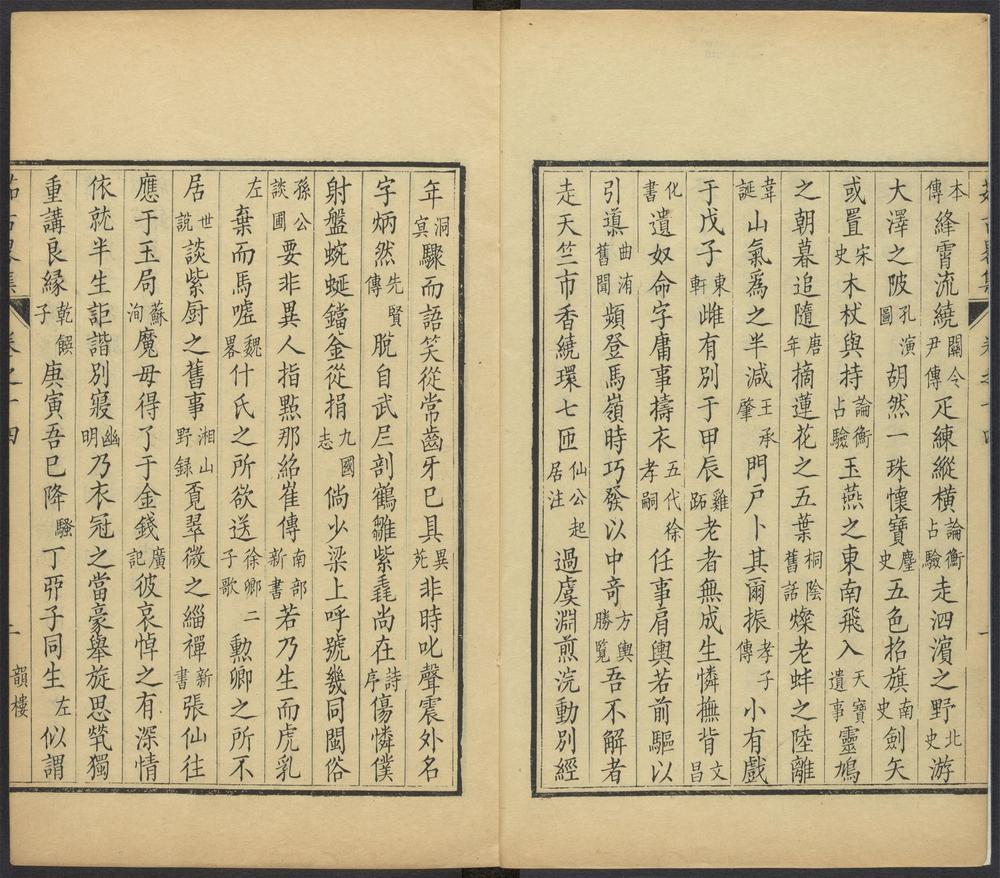 本傳絳霄流繞關令尹傳疋練縱橫論衡占驗走泗濱之野北史游
大澤之陂孔演圖胡然一珠懷寶塵史五色招旗南史劍矢
或置宋史木杖與持論衡占驗玉燕之東南飛入天寶遺事靈鳩
之朝暮追隨唐年摘蓮花之五葉桐陰舊話燦老蚌之陸離
韋誕山氣爲之半減王承肇門戶卜其爾振孝子傳小有戲
于戊子東軒雌有別于甲辰雞跖老者無成生憐撫背文昌
化書遺奴命字庸事擣衣五代徐孝嗣任事肩輿若前驅以
引漁曲洧舊聞頻登馬嶺時巧發以中奇方輿勝覽吾不解者
走天竺市香繞環七匝仙公起居注過虞淵煎浣動別經
年洞冥驟而語笑從常齒牙已具異苑非時叱聲震外名
字炳然先賢傳脫自武屍剖鶴雛紫毳尚在詩序傷憐僕
射盤蜿蜒鐺釜從捐九國志倘少梁上呼號幾同閩俗
孫公談圃要非異人指點那紿崔傳南部新書若乃生而虎乳
左棄而馬噓魏畧什氏之所欲送徐卿二子歌勲卿之所不
居世說談紫厨之舊事湘山野録覔翠微之緇禪新書張仙往
應于玉局蘇洵魔母得了于金錢廣記彼哀悼之有深情
依就半生詎諧別寢幽明乃衣冠之當豪舉旋思煢獨
重講良緣乾饌子庚寅吾巳降騷丁亞子同生左似謂
二
韻樓